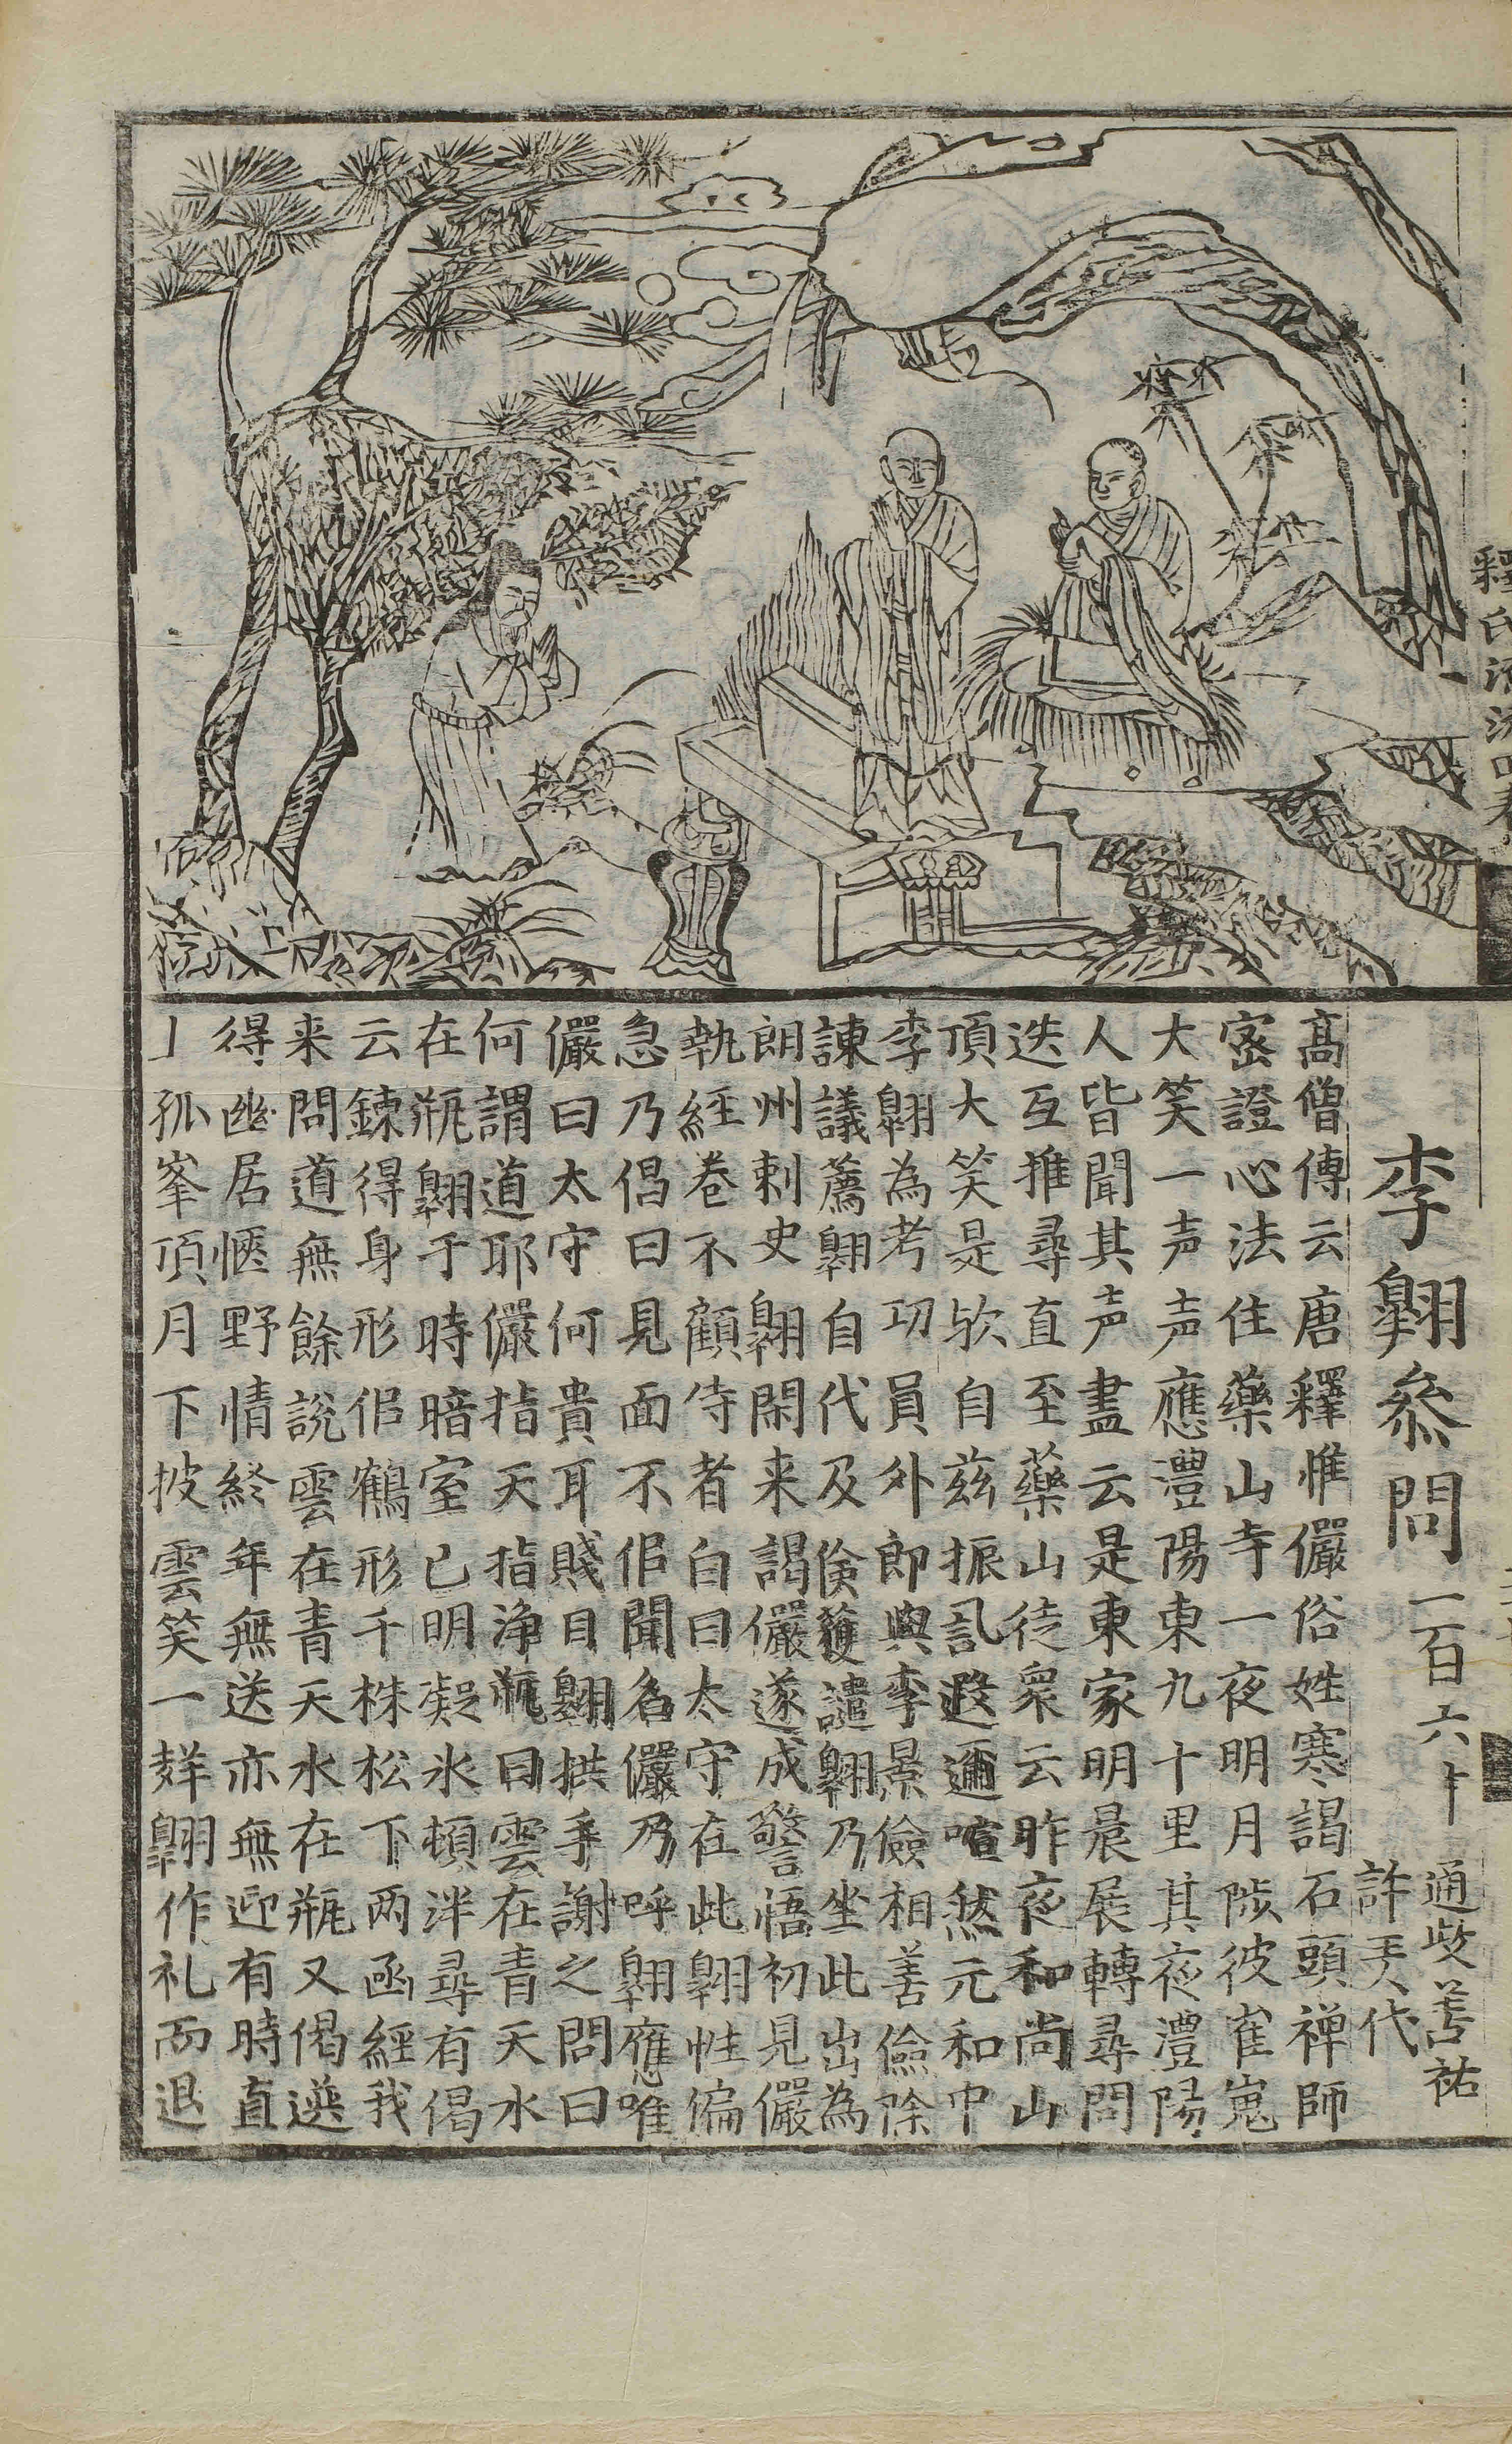 李翱叅問一百六十
通政善祐
許天代
高僧傳云唐釋惟儼俗姓寒謁石頭禅師
宻證心法住藥山寺一夜明月陟彼崔嵬
大笑一声声應澧陽東九十里其夜澧陽
人皆聞其声盡云是東家明晨展轉尋問
迭互推尋直至藥山徒衆云昨夜和尚山
頂大笑是欤自兹振風遐邇喧然元和中
李翱為考功員外郎與李景儉相善儉除
諫議薦翱自代及儉獲譴翱乃坐此出為
朗州刺史翱閑来謁儼遂成警悟初見儼
執經卷不顧侍者白曰太守在此翱性徧
急乃倡曰見面不似聞名儼乃呼翱應唯
儼曰太守何貴耳賤目翱拱手謝之問曰
何謂道耶儼指天指浄瓶曰雲在青天水
在瓶翱于時暗室已明凝氷頓泮尋有偈
云鍊得身形佀鶴形千株松下两函經我
来問道無餘説雲在青天水在瓶又偈遗
得幽居愜野情終年無送亦無迎有時直
丄孤峯頂月下披雲笑一聲翱作礼而退
釋氏源流